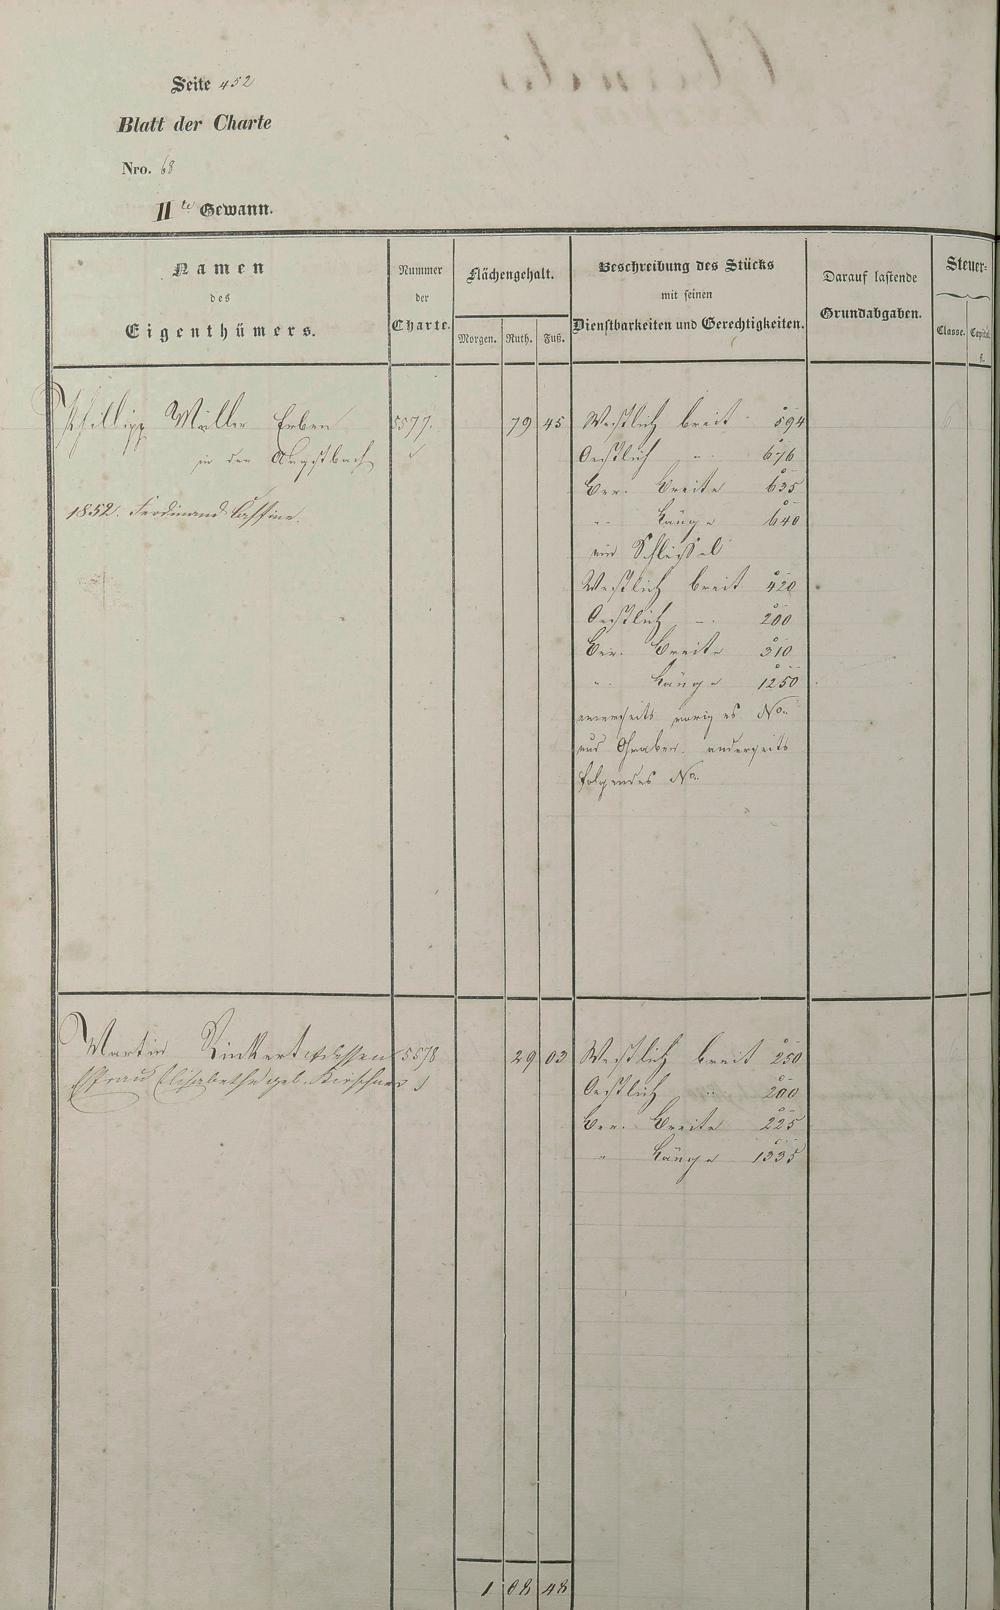 Seite 452
Blatt der Charte
Nro. 68
II te Gewann.
Namen des Eigenthümers.
Nummer der Charte.
Flächengehalt.
Morgen. Ruth. Fuß.
Beschreibung des Stücks mit seinen Dienstbarkeiten und Gerechtigkeiten.
Darauf lastende Grundabgaben.
Steuer-
Classe. Capital. f.
Phillipp Müller Erben 5577. 79 45 Westlich breit 594
in der Angstbach Oestlich " 676
Ver. Breite 635
1852. Ferdinand Cassine. " Länge 640
ein Schleissel
Westlich breit 420
Oestlich " 200
Ver. Breite 310
" Länge 1250
einerseits voriges No.
und Graben. anderseits
folgendes No.
Martin Rinkert & dessen 5578 29 03 Westlich breit 250
Ehfrau Elisabetha geb. Kirschner Oestlich " 200
Ver. Breite 225
" Länge 1335
1 08 48